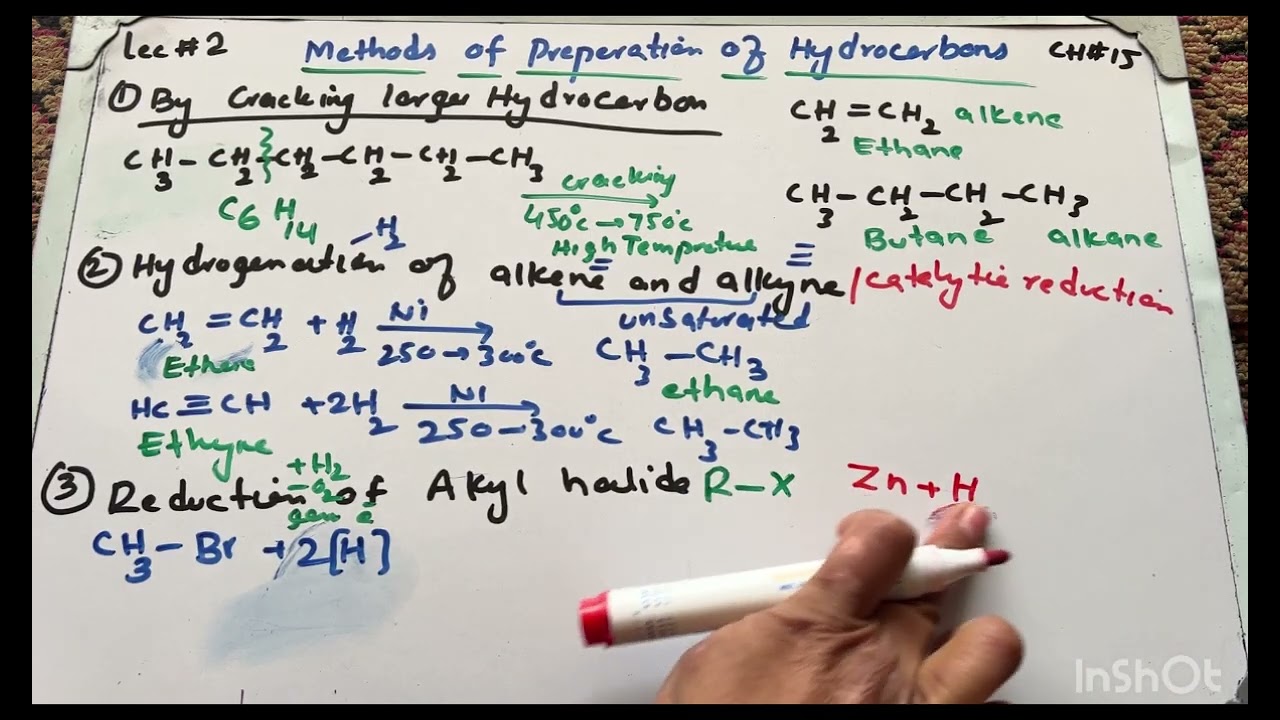 Lec # 2 Methods of Preperation of Hydrocarbons CH#15
① By Cracking larger Hydrocarbon
CH3 - CH2 - CH2 - CH2 - CH2 - CH3
C6 H14
cracking
450°c → 750°c
High Temprature
CH2 = CH2 alkene
Ethane
CH3 - CH2 - CH2 - CH3
Butane alkane
H2
② Hydrogenation of alkene and alkyne / catalytic reduction
= ≡
unsaturated
CH2 = CH2 + H2 Ni 250 → 300°c CH3 - CH3
Ethene ethane
HC ≡ CH + 2H2 Ni 250 - 300°c CH3 - CH3
Ethyne
+ H2
- O2
gain e
③ Reduction of Akyl halide R - X Zn + H
CH3 - Br + 2[H]
InShOt